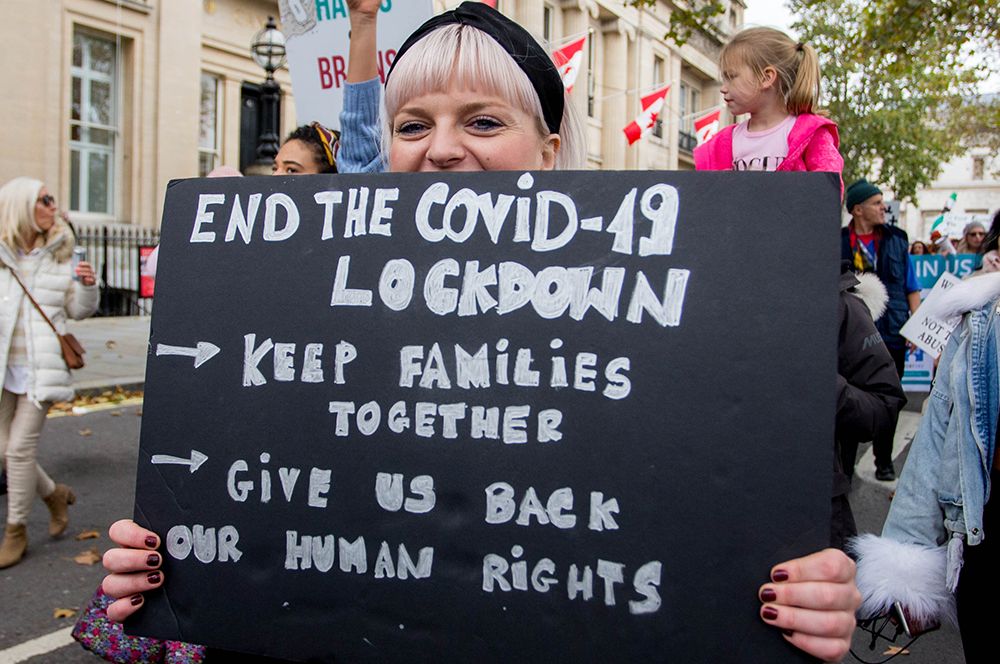 BR
END THE COVID-19
LOCKDOWN
→ KEEP FAMILIES
TOGETHER
→ GIVE US BACK
OUR HUMAN RIGHTS
IN US
NOT